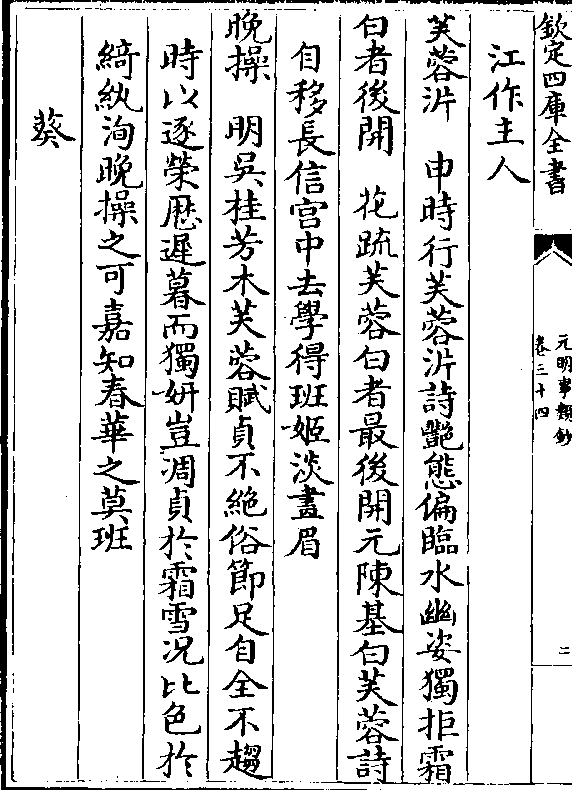 欽定四庫全書
元明事類鈔
卷三十四
二
江作主人
芙蓉沜 申時行芙蓉沜詩艷態偏臨水幽姿獨拒霜
白者後開 花疏芙蓉白者最後開元陳基白芙蓉詩
自移長信宮中去學得班姬淡畫眉
晚操 明吳桂芳木芙蓉賦貞不絶俗節足自全不趨
時以逐榮厯遲暮而獨妍豈凋貞於霜雪况比色於
綺紈洵晚操之可嘉知春華之莫班
葵